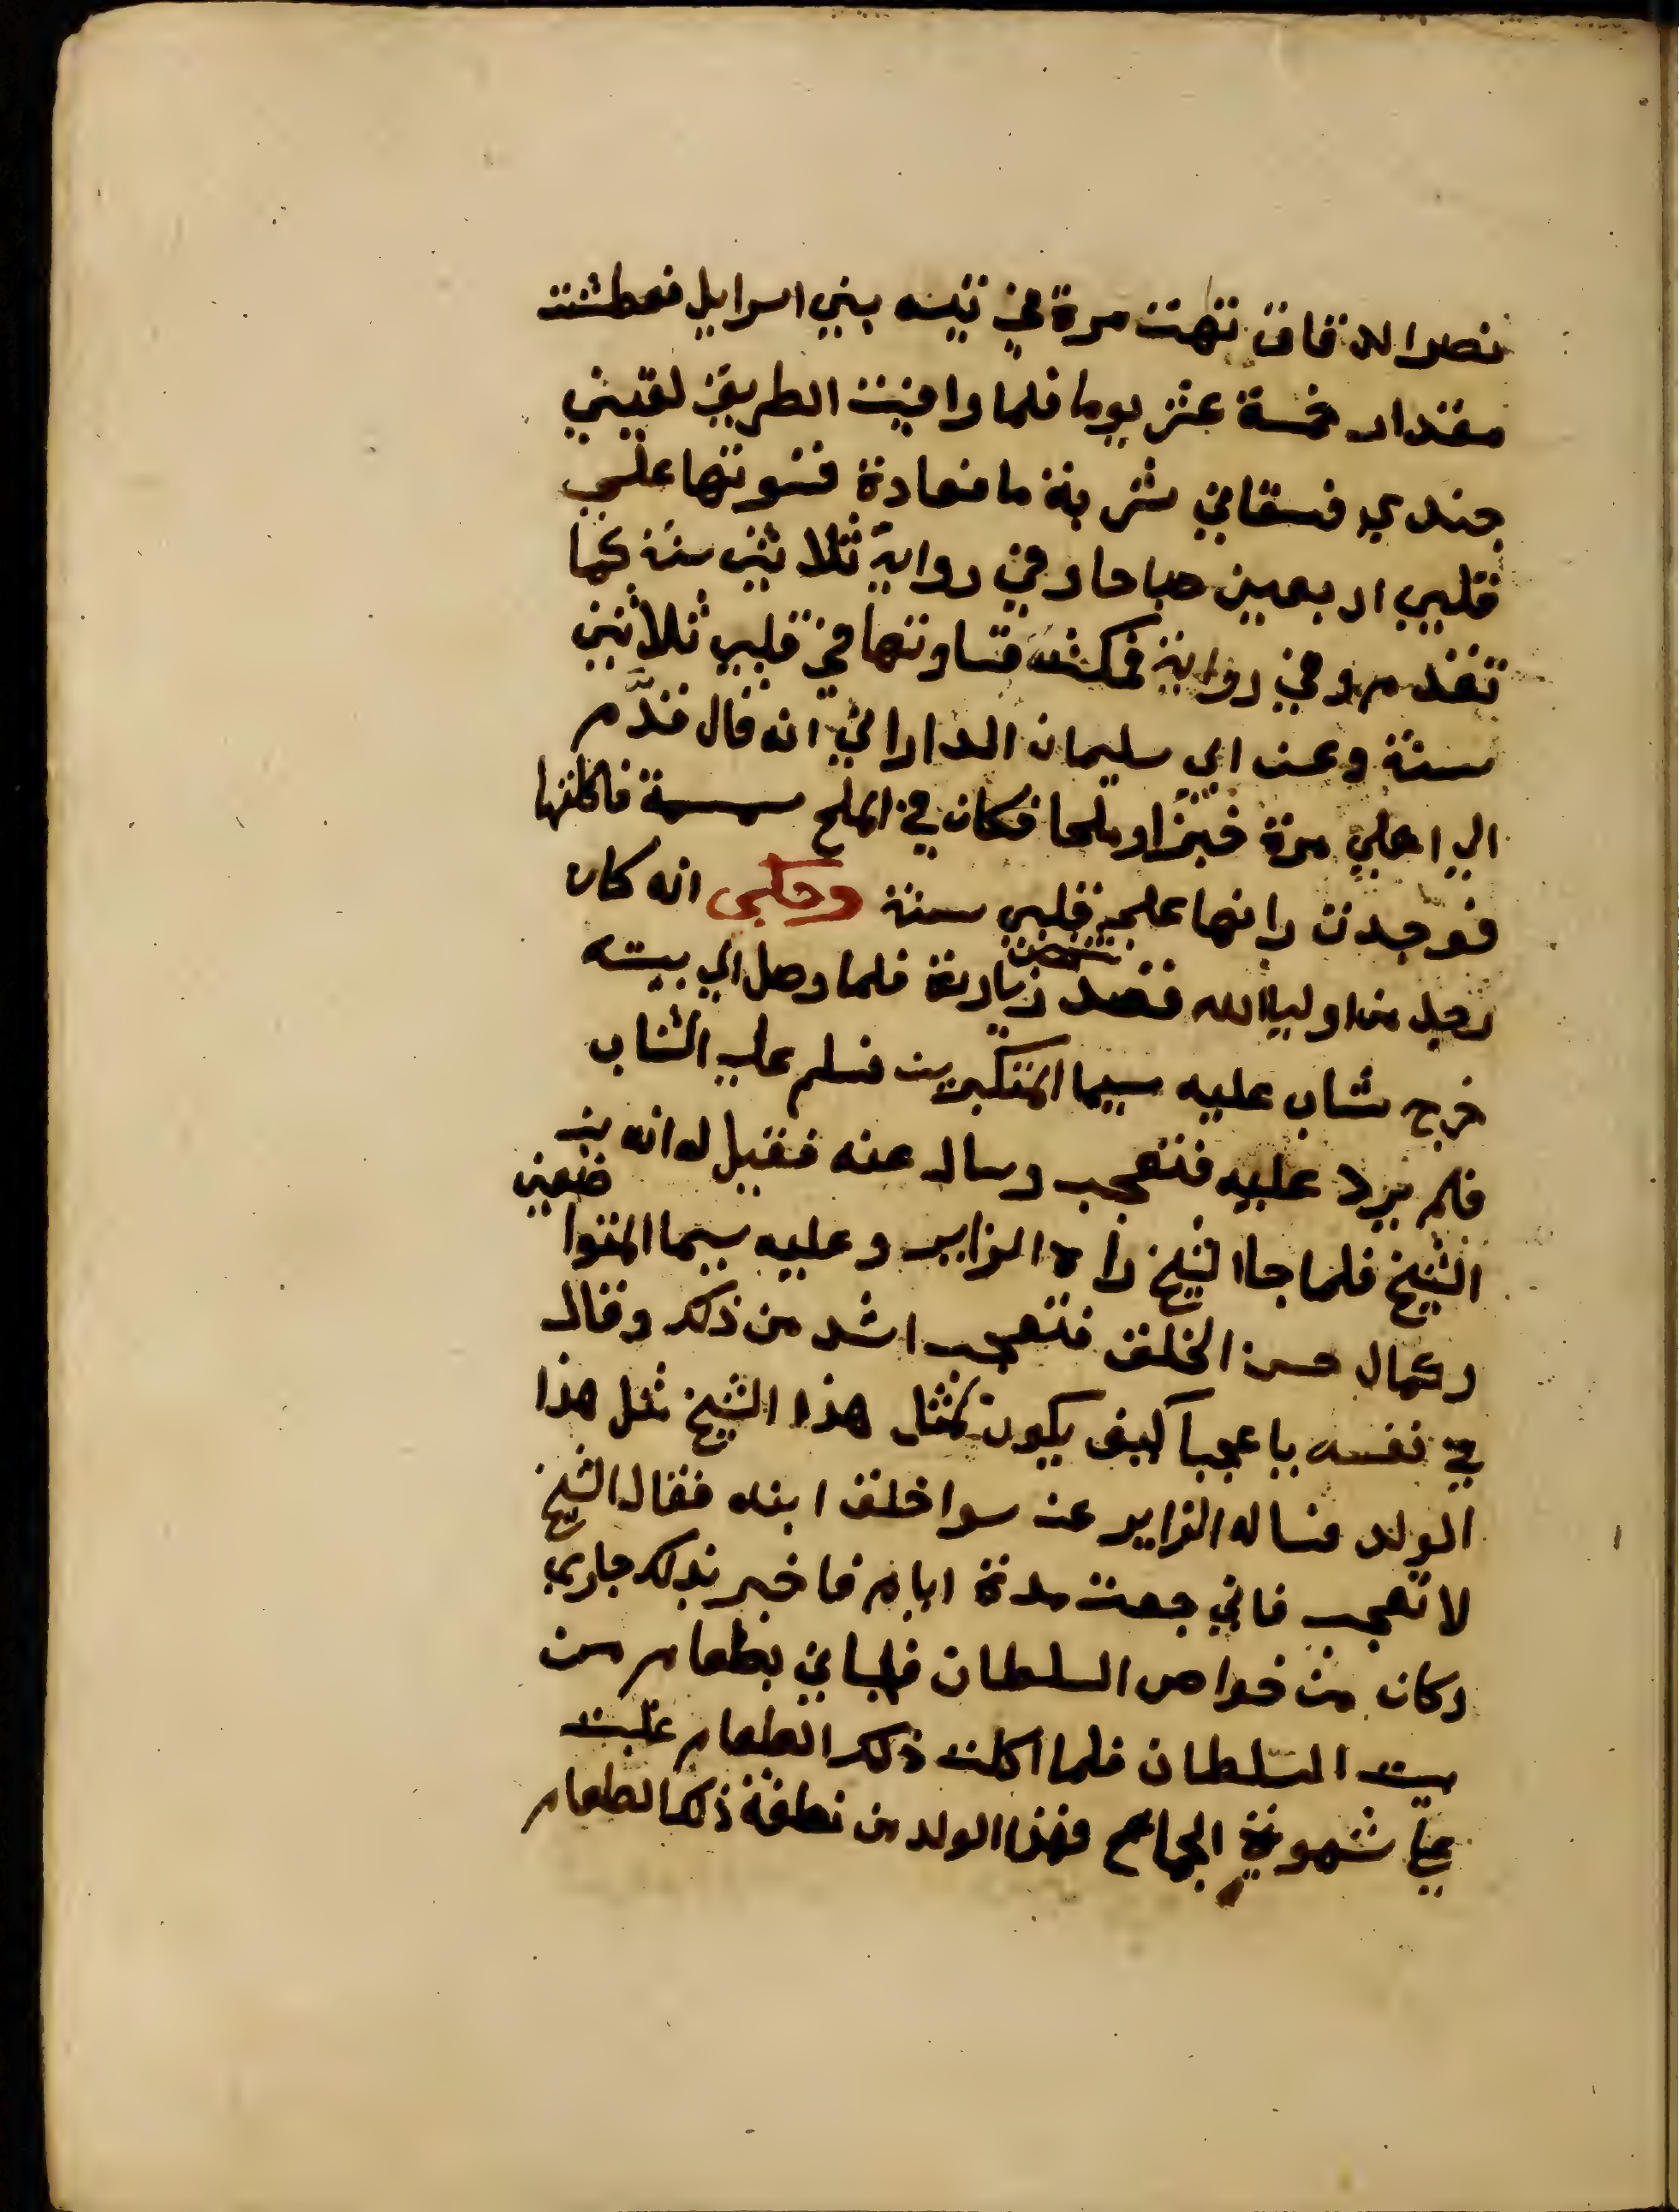 نصر الدقاق تهت مرة في تيه بني اسرايل فعطشت
مقدار خمسة عشر يوما فلما وافيت الطريق لقيني
جندي فسقاني شربة ما فعادة قسوتها علي
قلبي اربعين صباحا وفي رواية ثلاثين سنة كما
تقدم وفي رواية فمكثت قساوتها في قلبي ثلاثين
سنة وعن ابي سليمان الداراني انه قال قدّم
الي اهلي مرة خبزا وملحا فكان في الملح سمسمة فاكلتها
فوجدت رانها علي قلبي سنة وحكى انه كان
رجل من اوليا الله فقصد زيارته فلما وصل الي بيته
خرج شاب عليه سيما المتكبرين فسلم علي الشاب
فلم يرد عليه فتعجب وسال عنه فقيل له انه بن
الشيخ فلما جا الشيخ راه الزاير وعليه سيما المتواضعين
وكمال حسن الخلق فتعجب اشد من ذلك وقال
في نفسه يا عجبا كيف يكون لمثل هذا الشيخ مثل هذا
الولد فساله الزاير عن سوا خلق ابنه فقال الشيخ
لا تعجب فاني جعت مدة ايام فاخبر بذلك جاري
وكان من خواص السلطان فجاني بطعام من
بيت السلطان فلما اكلت ذلك الطعام غلبت
علي شهوة الجماع فهذا الولد من نطفة ذلك الطعام